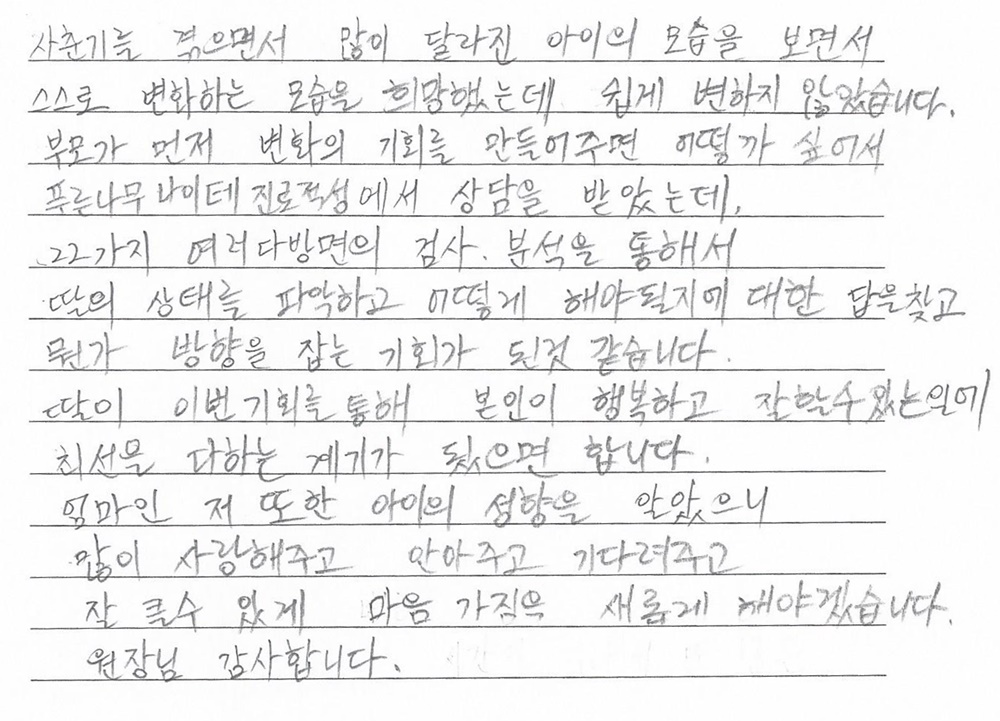 사춘기를 겪으면서 많이 달라진 아이의 모습을 보면서
스스로 변화하는 모습을 희망했는데 쉽게 변하지 않았습니다.
부모가 먼저 변화의 기회를 만들어주면 어떨까 싶어서
푸른나무 나이테 진로적성에서 상담을 받았는데,
22가지 여러다방면의 검사.분석을 통해서
딸의 상태를 파악하고 어떻게 해야될지에 대한 답을찾고
뭔가 방향을 잡는 기회가 된것 같습니다.
딸이 이번기회를통해 본인이 행복하고 잘할수있는일에
최선을 다하는 계기가 됬으면 합니다.
엄마인 저 또한 아이의 성향을 알았으니
많이 사랑해주고 안아주고 기다려주고
잘 클수 있게 마음 가짐을 새롭게 해야겠습니다.
원장님 감사합니다.